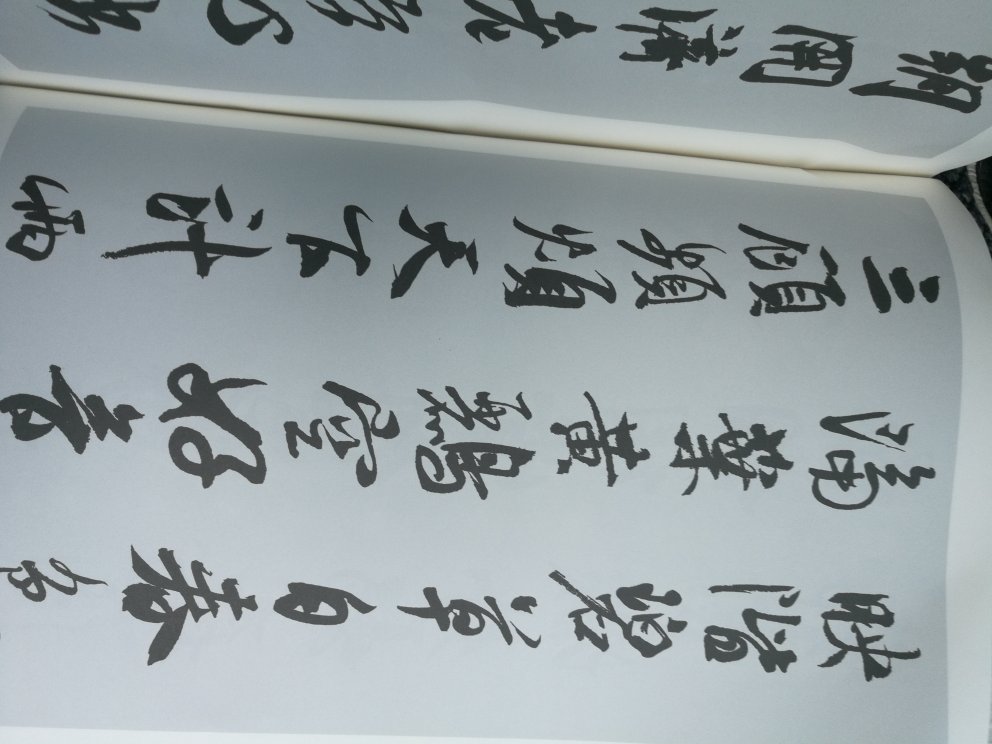 映階碧草自春色
隔葉黄鸝空好音
三顧頻煩天下計兩
朝開濟老臣心